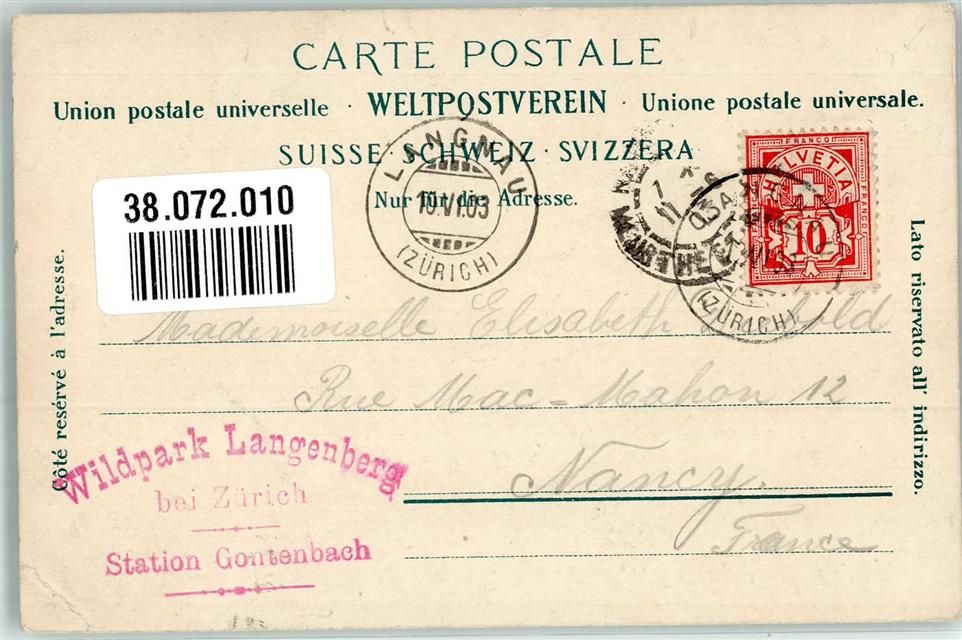 CARTE POSTALE
Union postale universelle · WELTPOSTVEREIN · Unione postale universale.
SUISSE · SCHWEIZ · SVIZZERA
Nur für die Adresse.
38.072.010
LANGNAU
10.VI.03
(ZÜRICH)
FRANCO
HELVETIA
10
(ZÜRICH)
Côté resérvé à l'adresse.
Lato riservato all' indirizzo.
Mademoiselle Elisabeth
Rue Mac-Mahon 12
Nancy.
France
Wildpark Langenberg
bei Zürich
Station Gontenbach